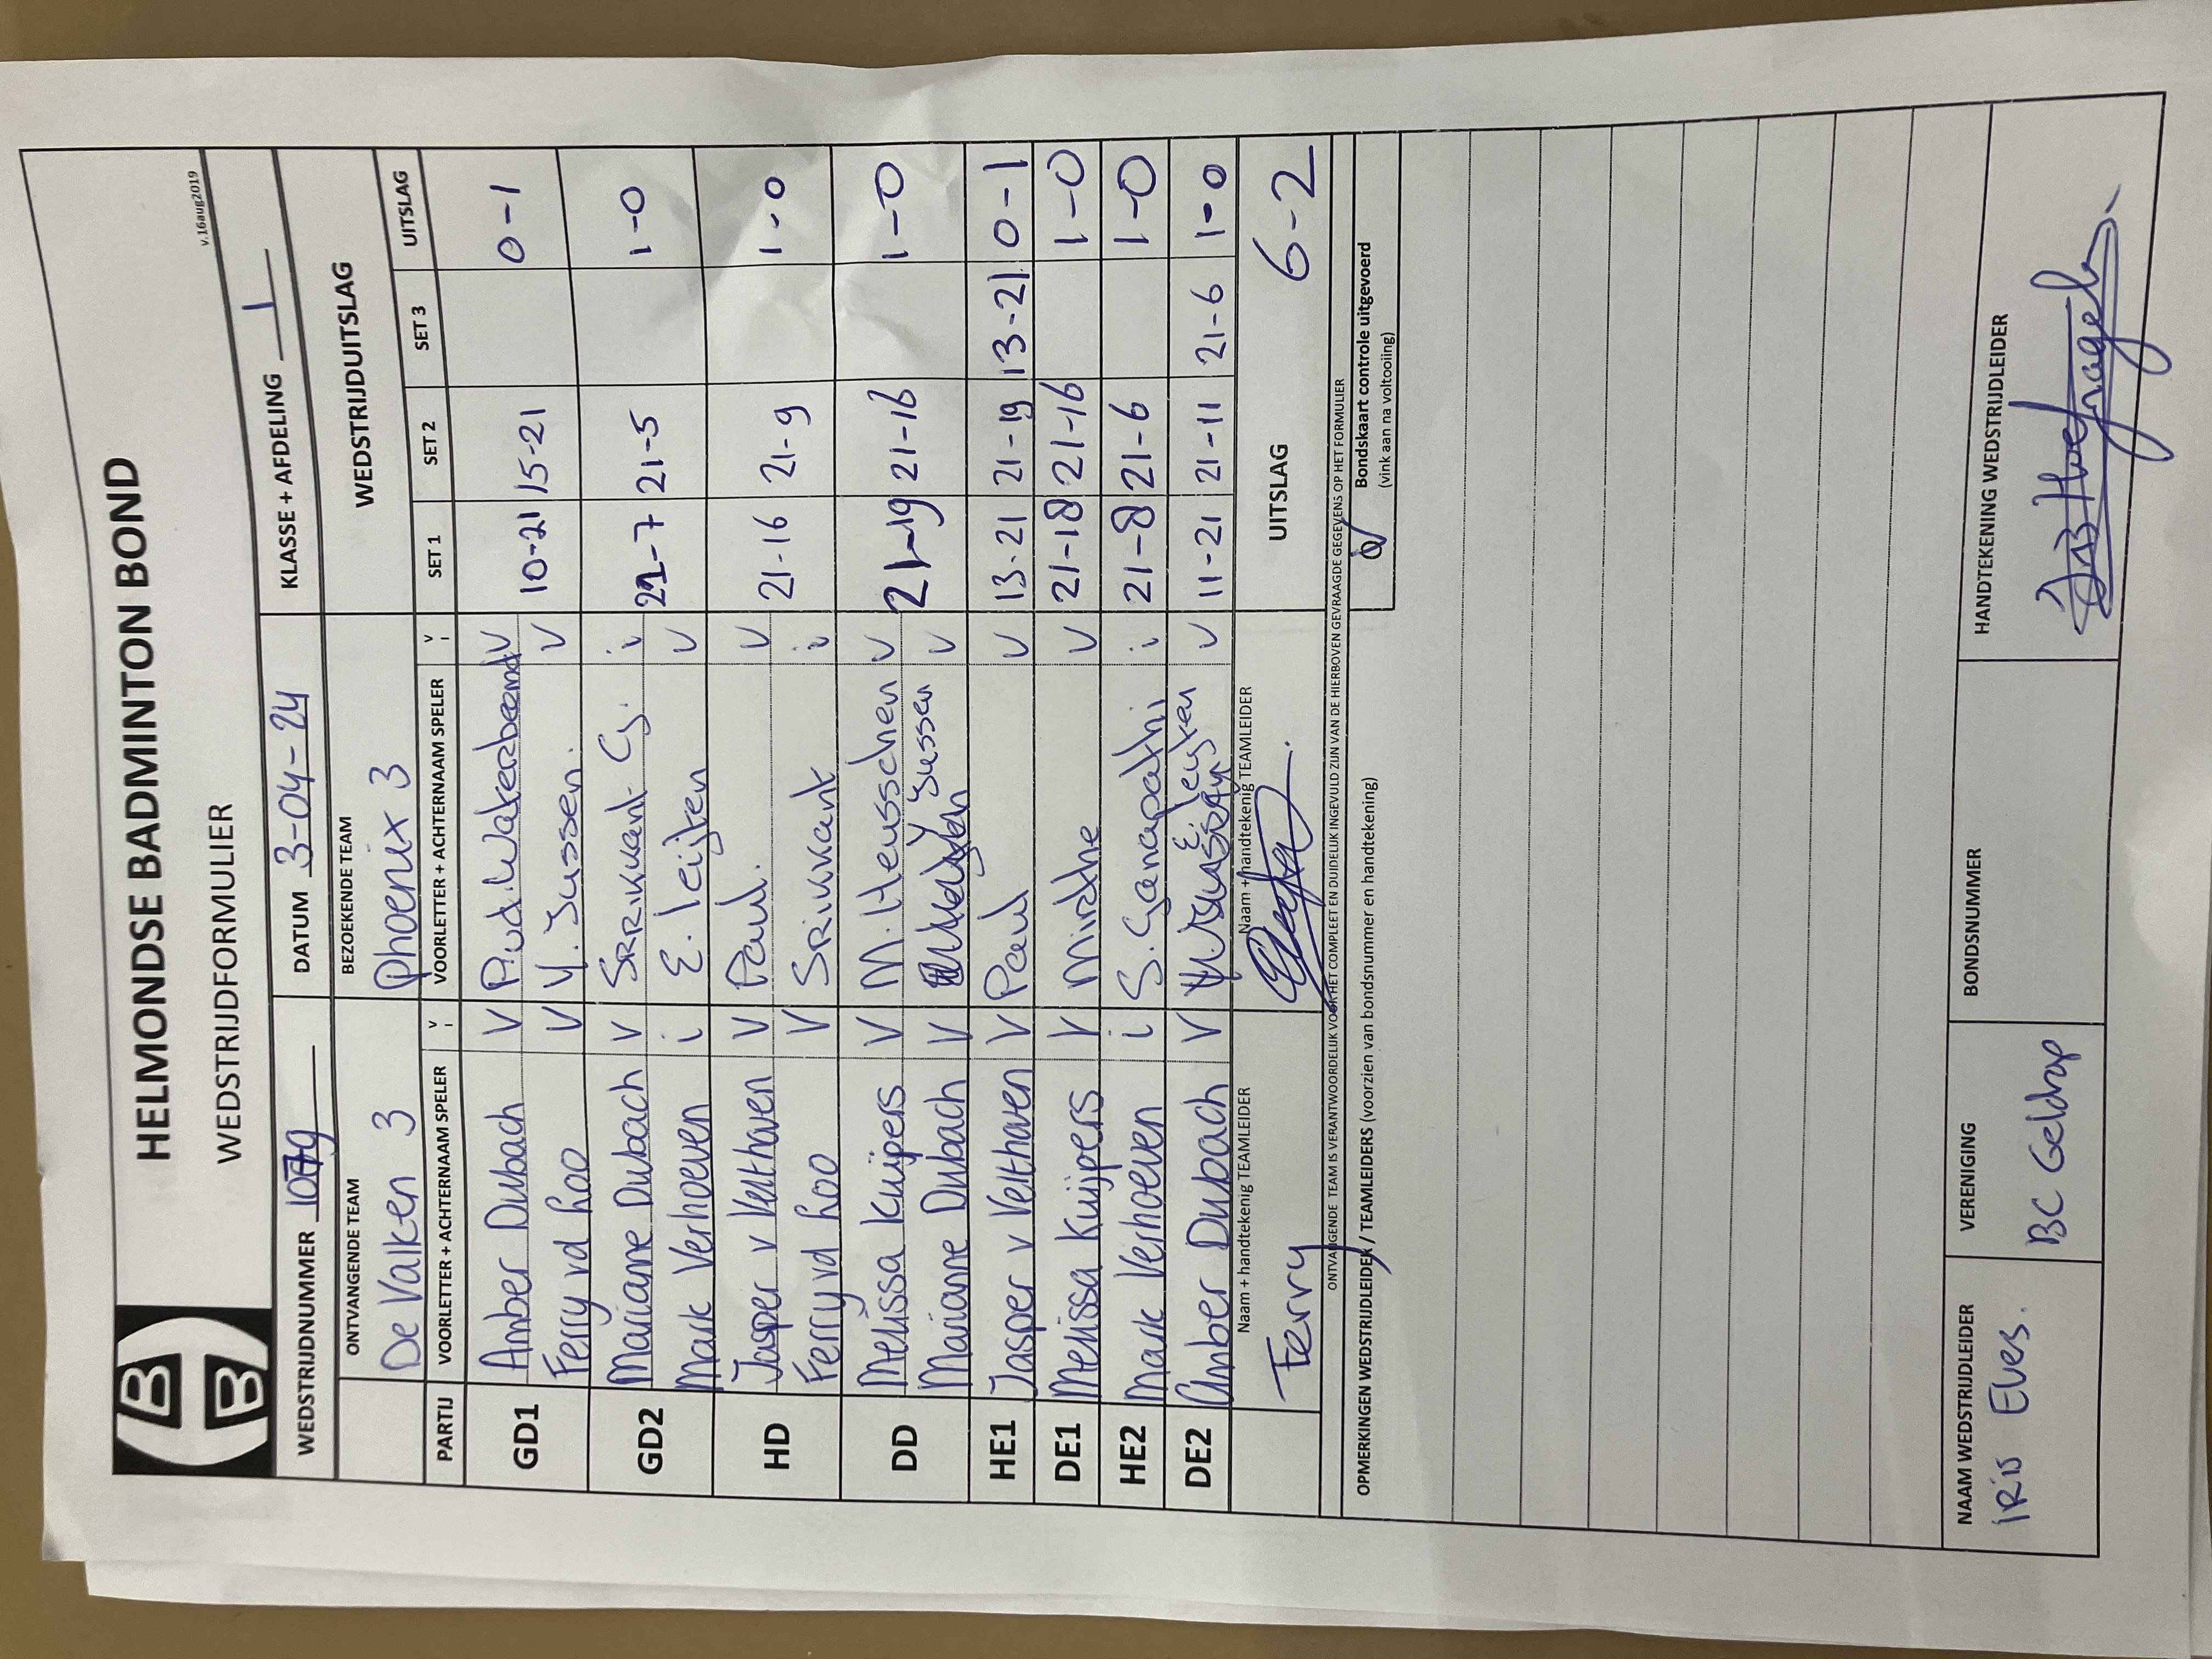 HELMONDSE BADMINTON BOND
v.16aug2019
WEDSTRIJDFORMULIER
WEDSTRIJDNUMMER DATUM 3-04-24 KLASSE + AFDELING 1
ONTVANGENDE TEAM BEZOEKENDE TEAM WEDSTRIJDUITSLAG
De Valken 3 Phoenix 3
PARTIJ VOORLETTER + ACHTERNAAM SPELER V I VOORLETTER + ACHTERNAAM SPELER V I SET 1 SET 2 SET 3 UITSLAG
GD1 Amber Dubach V P.v.d. V 10-21 15-21 0-1
Ferry vd Loo V Y. Jussen. V
GD2 Marianne Dubach V Srikkant G. i 21-7 21-5 1-0
Mark Verhoeven i E. leijten V
HD Jasper v Velthoven V Paul. V 21-16 21-9 1-0
Ferry vd Loo V Srikkant i
DD Melissa Kuijpers V M. Heusschen V 21-19 21-16 1-0
Marianne Dubach V Y Jussen V
HE1 Jasper v Velthoven V Paul V 13-21 21-19 13-21 0-1
DE1 Melissa Kuijpers V V 21-18 21-16 1-0
HE2 Mark Verhoeven i S. Ganapathi i 21-8 21-6 1-0
DE2 Amber Dubach V E. leijten V 11-21 21-11 21-6 1-0
Naam + handtekenig TEAMLEIDER Naam + handtekenig TEAMLEIDER UITSLAG 6-2
Ferry
ONTVANGENDE TEAM IS VERANTWOORDELIJK VOOR HET COMPLEET EN DUIDELIJK INGEVULD ZIJN VAN DE HIERBOVEN GEVRAAGDE GEGEVENS OP HET FORMULIER
OPMERKINGEN WEDSTRIJDLEIDER / TEAMLEIDERS (voorzien van bondsnummer en handtekening)
Bondskaart controle uitgevoerd
(vink aan na voltooiing)
NAAM WEDSTRIJDLEIDER VERENIGING BONDSNUMMER HANDTEKENING WEDSTRIJDLEIDER
IRIS Eves. BC Geldrop